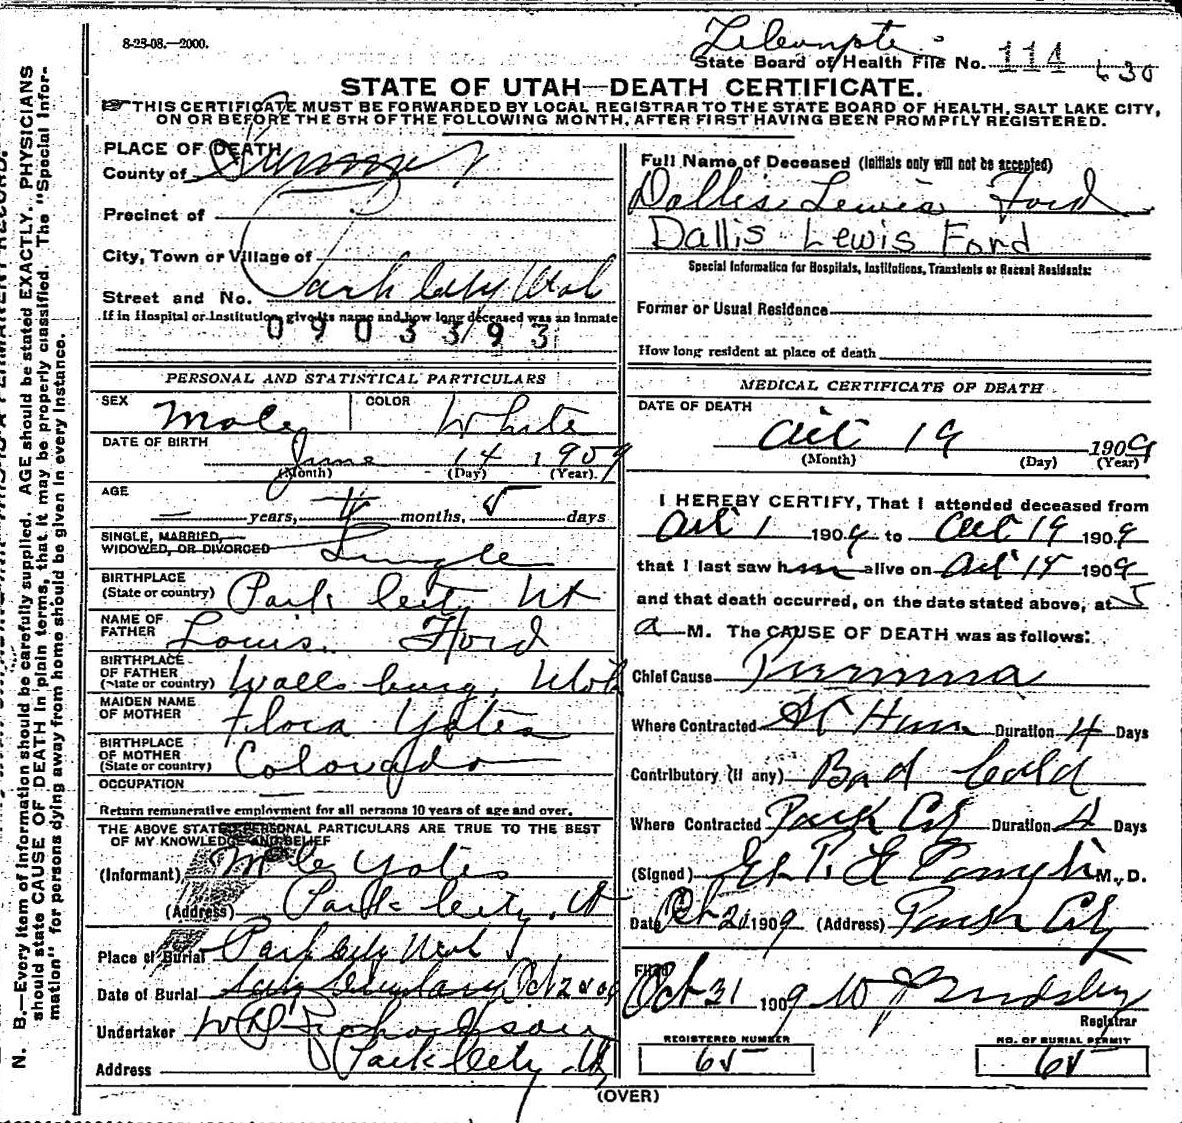 8-23-08.—2000.
State Board of Health File No. 114 630
STATE OF UTAH—DEATH CERTIFICATE.
THIS CERTIFICATE MUST BE FORWARDED BY LOCAL REGISTRAR TO THE STATE BOARD OF HEALTH, SALT LAKE CITY,
ON OR BEFORE THE 5TH OF THE FOLLOWING MONTH, AFTER FIRST HAVING BEEN PROMPTLY REGISTERED.
PLACE OF DEATH
County of Summit
Precinct of
City, Town or Village of
Street and No. Park City Utah
If in Hospital or Institution, give its name and how long deceased was an inmate
0903393
PERSONAL AND STATISTICAL PARTICULARS
SEX Male COLOR White
DATE OF BIRTH
June 14 1909
(Month) (Day) (Year).
AGE
— years, 4 months, 5 days
SINGLE, MARRIED,
WIDOWED, OR DIVORCED Single
BIRTHPLACE
(State or country) Park City Ut
NAME OF
FATHER Louis Ford
BIRTHPLACE
OF FATHER
(State or country) Wallsburg, Utah
MAIDEN NAME
OF MOTHER Flora Yates
BIRTHPLACE
OF MOTHER
(State or country) Colorado
OCCUPATION
Return remunerative employment for all persons 10 years of age and over.
THE ABOVE STATED PERSONAL PARTICULARS ARE TRUE TO THE BEST
OF MY KNOWLEDGE AND BELIEF
(Informant) Yates
(Address) Park City, Ut
Place of Burial Park City Utah
Date of Burial City Cemetary Oct 20 09
Undertaker Richardson
Address Park City Ut
Full Name of Deceased (Initials only will not be accepted)
Dallis Lewis Ford
Dallis Lewis Ford
Special Information for Hospitals, Institutions, Transients or Recent Residents:
Former or Usual Residence
How long resident at place of death
MEDICAL CERTIFICATE OF DEATH
DATE OF DEATH
Oct 19 1909
(Month) (Day) (Year)
I HEREBY CERTIFY, That I attended deceased from
Oct 1 1909 to Oct 19 1909
that I last saw him alive on Oct 1909
and that death occurred, on the date stated above, at 5
a M. The CAUSE OF DEATH was as follows:
Chief Cause
Where Contracted At Home Duration 4 Days
Contributory (if any) Bad Cold
Where Contracted Park City Duration 4 Days
(Signed) M. D.
Date Oct 20 1909 (Address) Park City
Filed Oct 31 1909
Registrar
REGISTERED NUMBER
65
NO. OF BURIAL PERMIT
65
(OVER)
N. B.—Every item of information should be carefully supplied. AGE should be stated EXACTLY. PHYSICIANS
should state CAUSE OF DEATH in plain terms, that it may be properly classified. The "Special Infor-
mation" for persons dying away from home should be given in every instance.